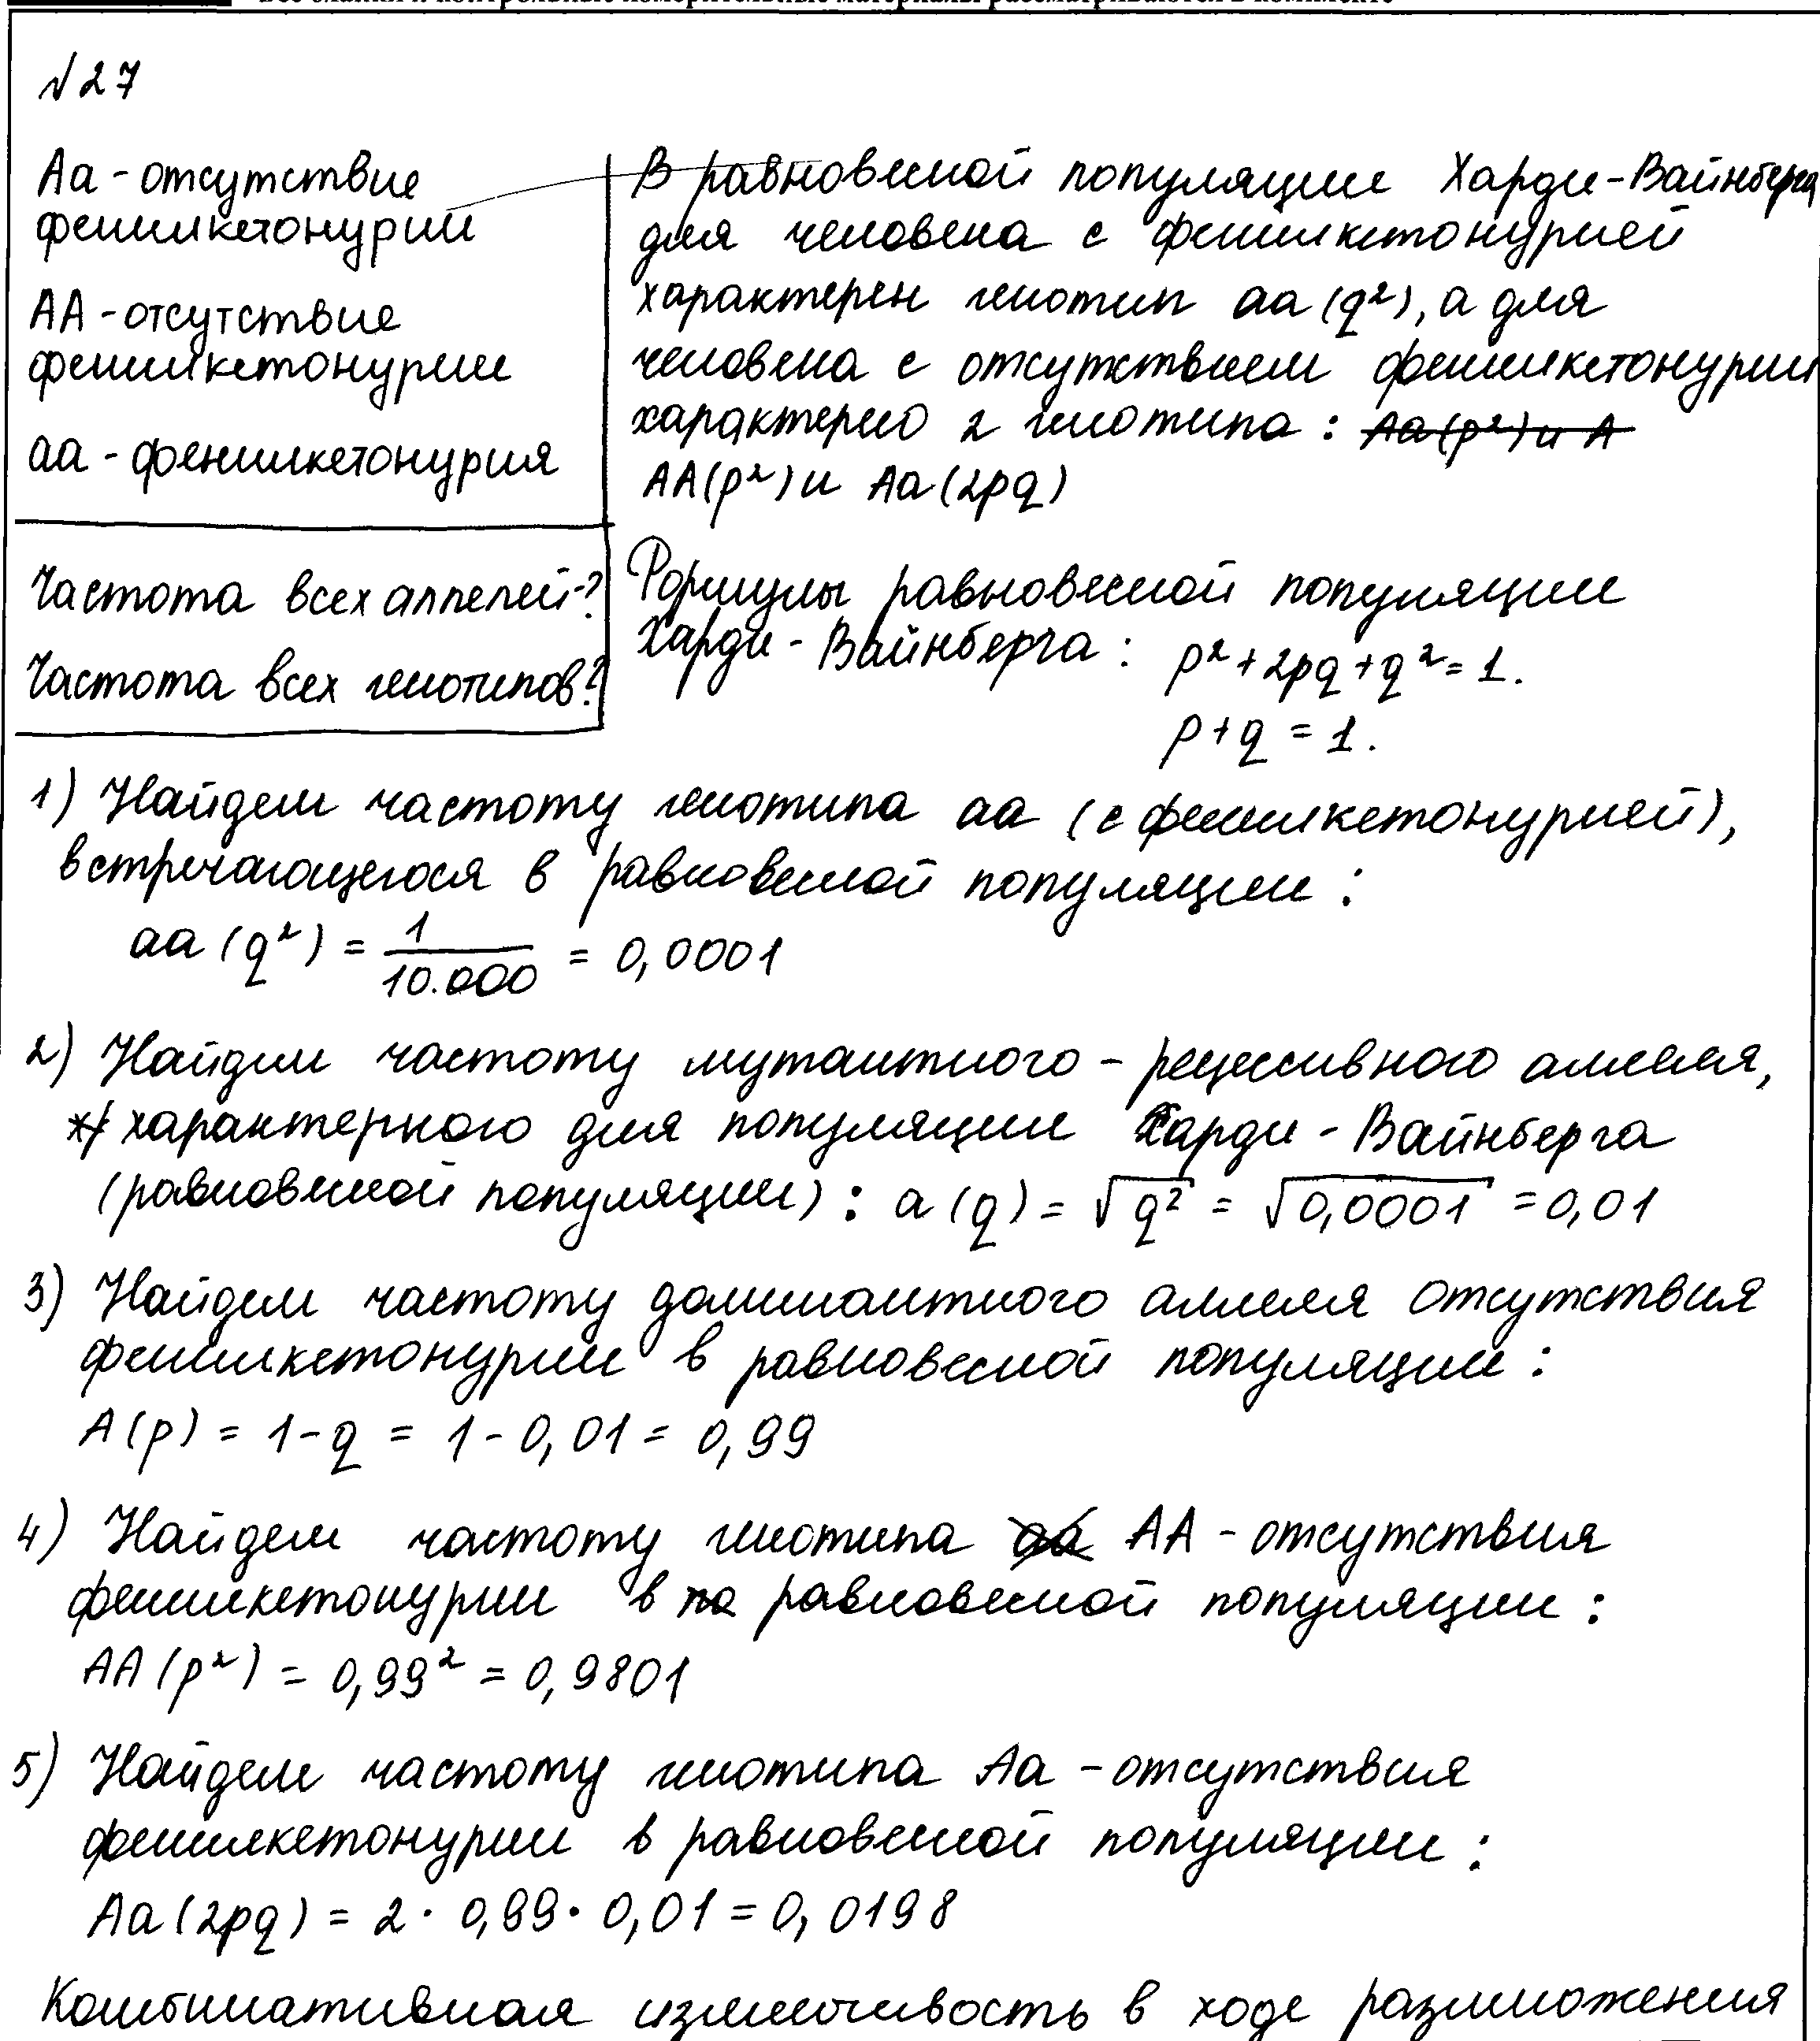 Все бланки и контрольные измерительные материалы рассматриваются в комплекте
№27
Аа - отсутствие
фенилкетонурии
АА - отсутствие
фенилкетонурии
аа - фенилкетонурия
Частота всех аллелей-?
Частота всех генотипов?
В равновесной популяции Харди-Вайнберга
для человека с фенилкетонурией
характерен генотип аа (q²), а для
человека с отсутствием фенилкетонурии
характерно 2 генотипа: Аа (p²) и А
АА (p²) и Аа (2pq)
Формулы равновесной популяции
Харди - Вайнберга: p² + 2pq + q² = 1.
p + q = 1.
1) Найдем частоту генотипа аа (с фенилкетонурией),
встречающегося в равновесной популяции:
аа (q²) = 1/10.000 = 0,0001
2) Найдем частоту мутантного - рецессивного аллеля,
характерного для популяции Харди - Вайнберга
(равновесной популяции): а (q) = √q² = √0,0001 = 0,01
3) Найдем частоту доминантного аллеля отсутствия
фенилкетонурии в равновесной популяции:
А (p) = 1 - q = 1 - 0,01 = 0,99
4) Найдем частоту генотипа аа АА - отсутствия
фенилкетонурии в по равновесной популяции:
АА (p²) = 0,99² = 0,9801
5) Найдем частоту генотипа Аа - отсутствия
фенилкетонурии в равновесной популяции:
Аа (2pq) = 2 · 0,99 · 0,01 = 0,0198
Комбинативная изменчивость в ходе размножения